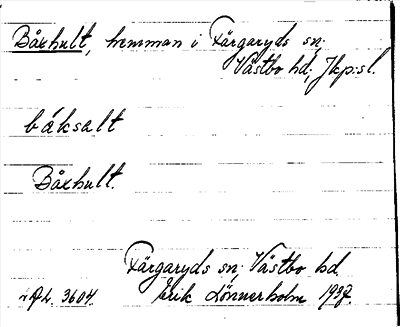 Båxhult, hemman i Färgaryds sn;
Västbo hd; Jkp:sl.
båksalt
Båxhult.
Färgaryds sn; Västbo hd.
3604. Erik Lönnerholm 1937.